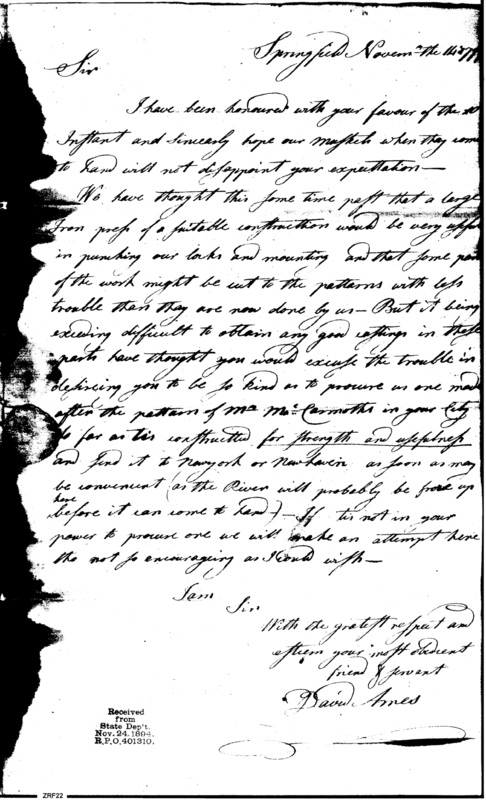 Springfield Novem. the 14
Sir
I have been honoured with your favour of the
Instant and sincearly hope our Muskets when they come
to hand will not disappoint your expecttation—
We have thought this some time past that a large
Iron press of a suitable construction would be very usefull
in punching our locks and mounting and that some part
of the work might be cut to the patterns with less
trouble than they are now done by us— But it being
exceeding difficult to obtain any good castings in these
parts have thought you would excuse the trouble in
desireing you to be so kind as to procure us one made
after the pattern of Mr. Mc. Carmoths in your City
so far as tis constructed for strength and usefulness
and send it to Newyork or Newhaven as soon as may
be convenient (as the River will probably be froze up
here
before it can come to hand)— If tis not in your
power to procure one we will make an attempt here
tho not so encouraging as I could wish—
I am
Sir
With the gratest respect and
esteem your most obedient
friend & servant
David Ames
Received
from
State Dep't.
Nov. 24, 1894.
R.P.O. 401310.
ZRF22